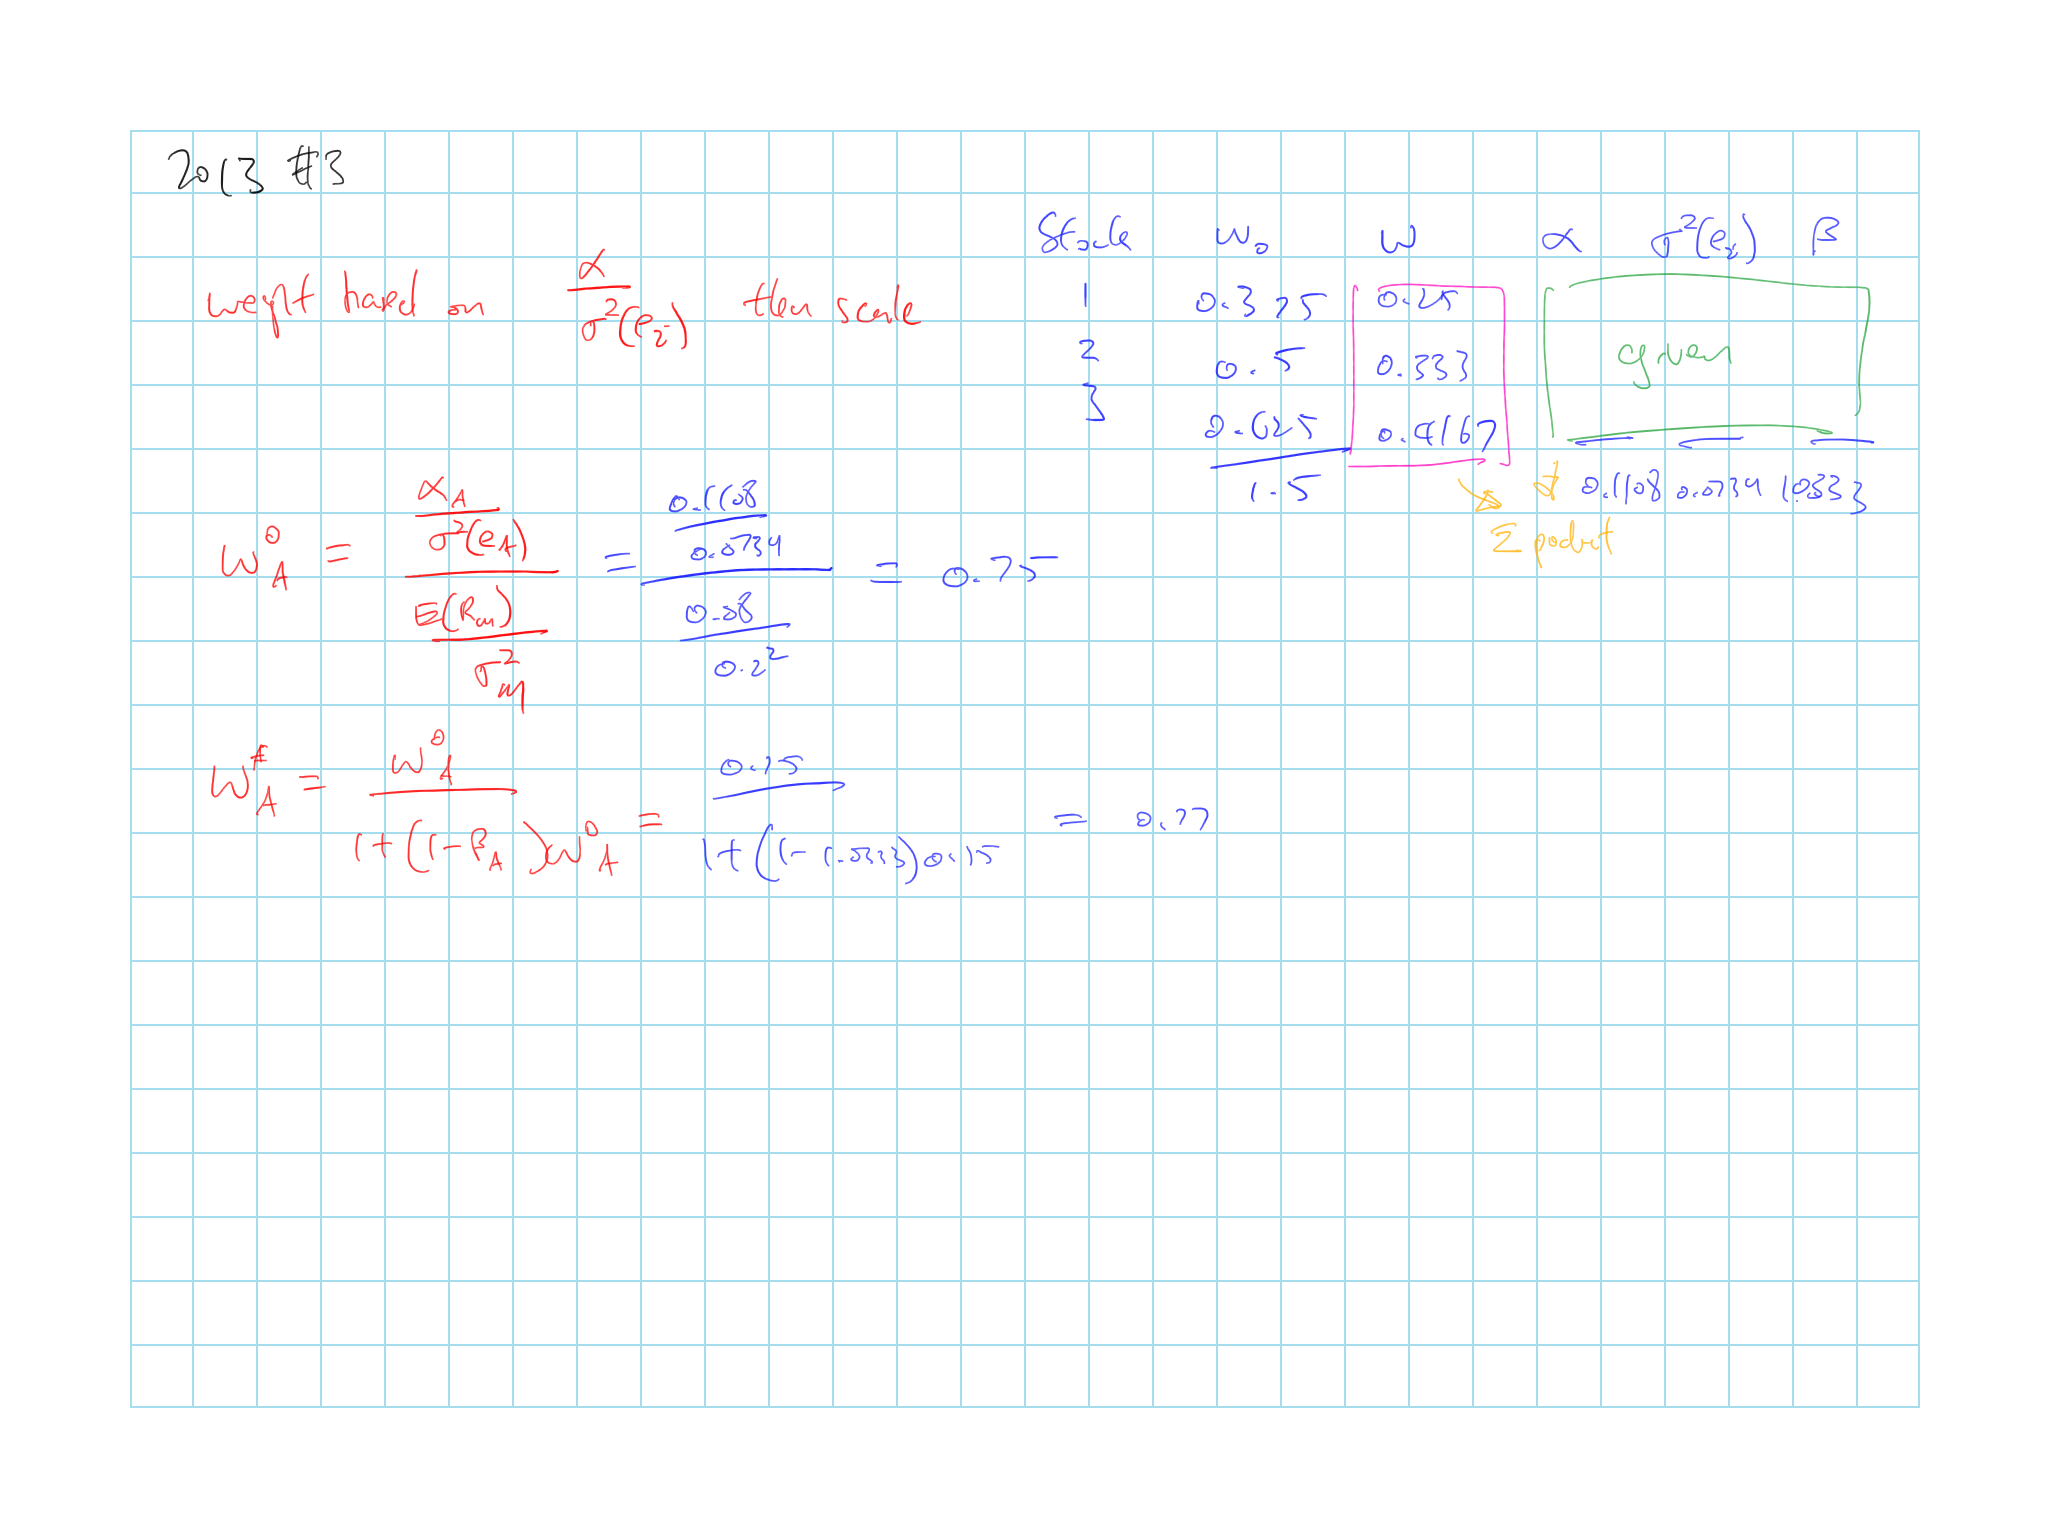 2013 #3
weight based on α / σ²(e_i) then scale
Stock w₀ w α σ²(e_i) β
1 0.375 0.25
2 0.5 0.333
3 0.625 0.4167
given
1.5 0.1108 0.0734 1.0333
Σ product
w_A^0 = (α_A / σ²(e_A)) / (E(R_m) / σ_m²) = (0.1108 / 0.0734) / (0.08 / 0.2²) = 0.75
w_A^* = w_A^0 / (1+(1-β_A)w_A^0) = 0.75 / (1+(1-1.0333)0.75) = 0.77